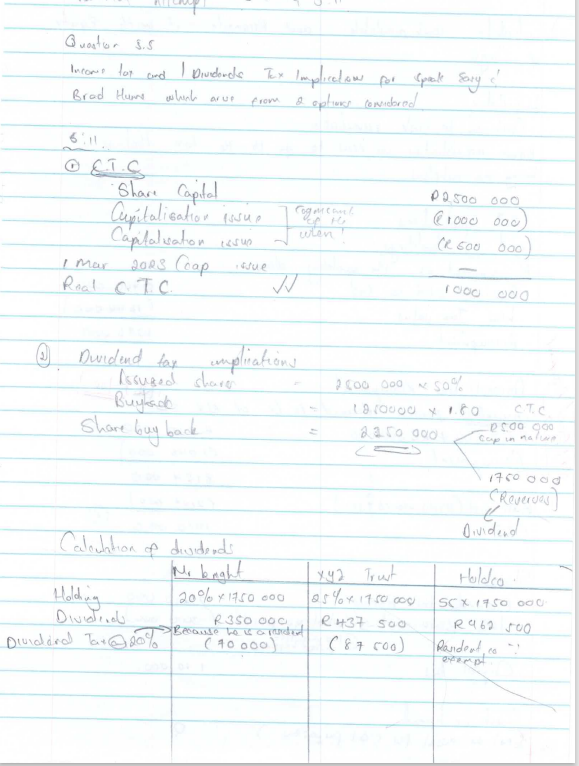 Question 5.5
Income tax and Dividends Tax Implications for
Brad Hume which arise from 2 options considered
5.11.
① C.T.C
Share Capital R2 500 000
Capitalisation issue (R1000 000)
Capitalisation issue (R 500 000)
1 Mar 2023 (cap issue —
Real C.T.C. 1000 000
② Dividend tax implications
Issued shares - 2500 000 x 50%
Buyback - 1250000 x 1.80 C.T.C
Share buy back = 2250 000 R500 000
cap in nature
1750 000
(Revenues)
Dividend
Calculation of dividends
Mr bright XYZ Trust Holdco.
Holding 20% x 1750 000 25% x 1750 000 55 x 1750 000
Dividends R350 000 R437 500 R962 500
Because he is a resident
Dividend Tax @ 20% (70 000) (87 500) Resident co
exempt